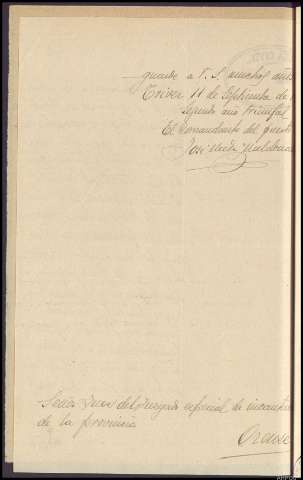 guarde a V. S. muchos años
11 de Septiembre de
Segundo año triunfal
El Comandante del puesto
José
Señor Juez del Juzgado especial de incauta
de la provincia
Orense